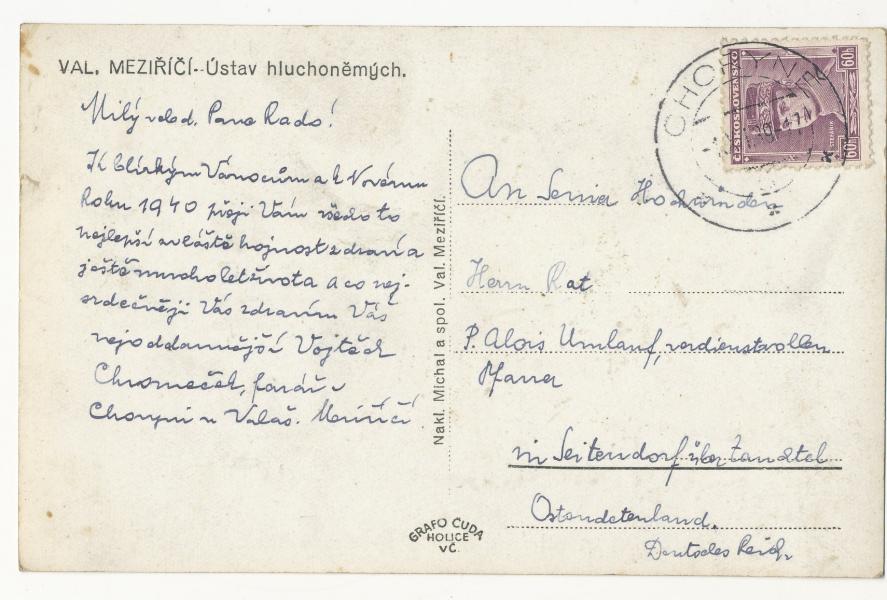 VAL. MEZIŘÍČÍ--Ústav hluchoněmých.
Milý veled. Pane Rado!
K blízkým Vánocům a k Novému
Roku 1940 přeji Vám všecko to
nejlepší zvláště hojnost zdraví a
ještě mnoho let života a co nej-
srdečněji Vás zdravím Váš
nejoddanější Vojtěch
Chromeček, farář v
Choryni u Valaš. Meziříčí
Nakl. Michal a spol. Val. Meziříčí.
GRAFO ČUDA
HOLICE
VČ.
ČESKOSLOVENSKO
60h
60h
ŠTEFÁNIK
CHORYNĚ
An Seine Hochwürden
Herrn Rat
P. Alois Umlauf, verdienstvollen
Pfarrer
in Seitendorf über Zauchtel
Ostsudetenland.
Deutsches Reich